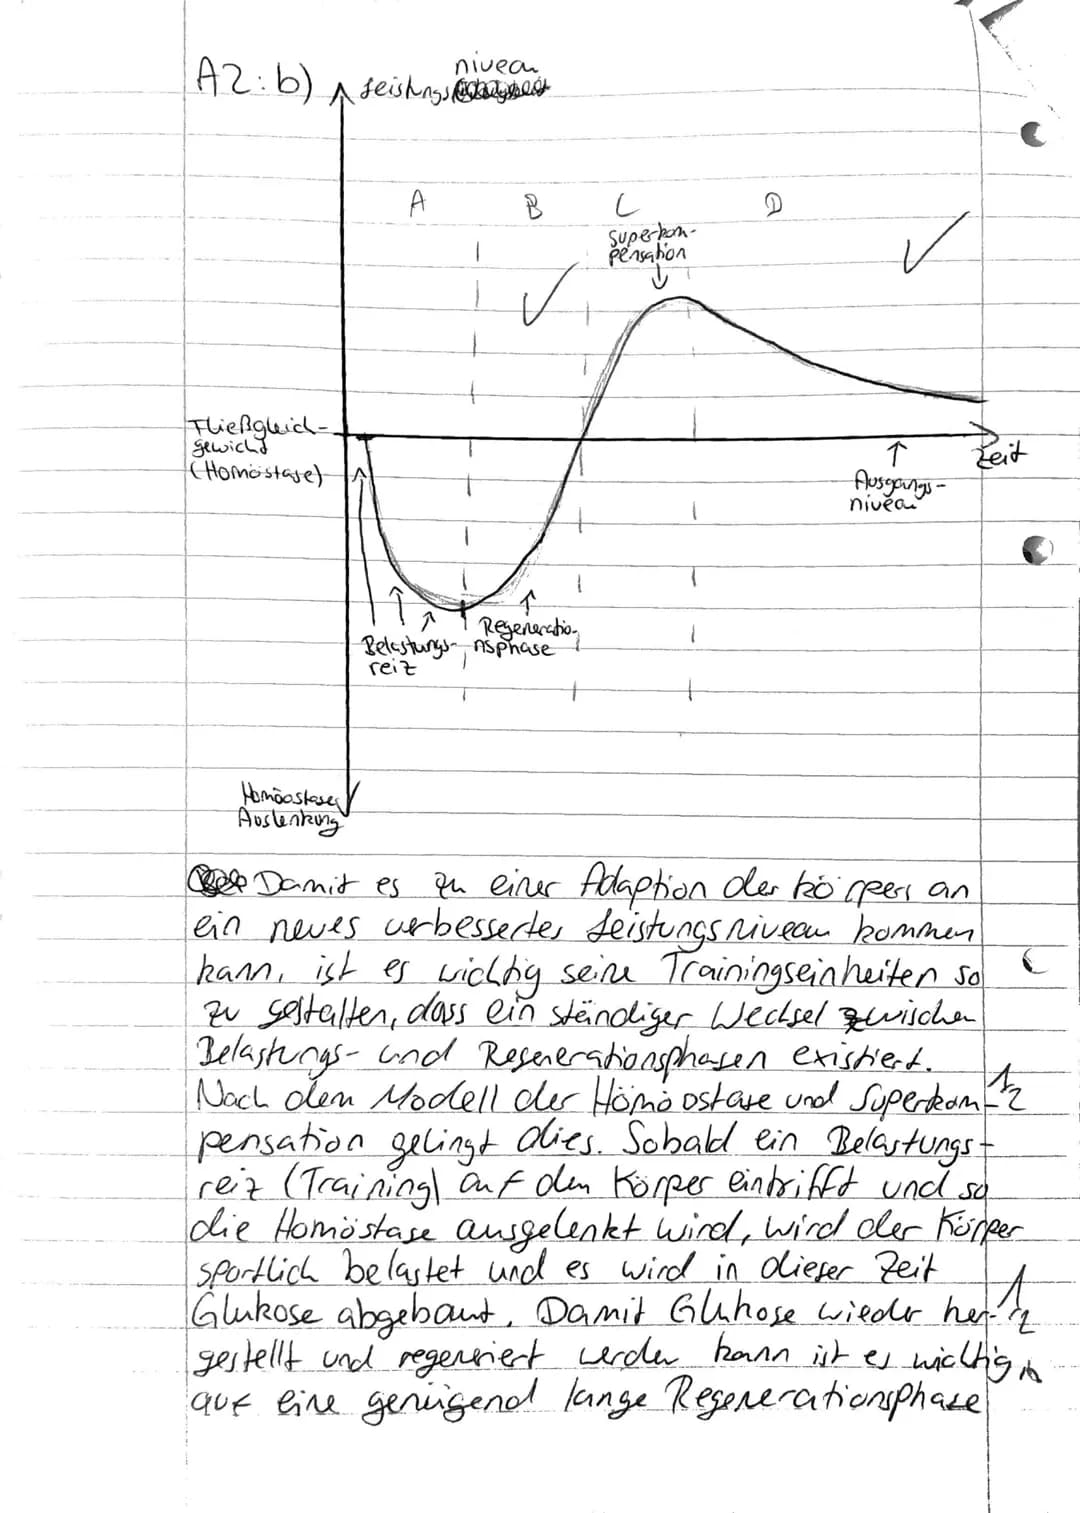 A2: b)
niveau
Leistungs
A B C D
Superkom-
pensation
Fließgleich-
gewicht
(Homöostase)
Zeit
Ausgangs-
niveau
Regeneratio-
nsphase
Belastungs-
reiz
Homöostase
Auslenkung
Damit es zu einer Adaption des Körpers an
ein neues verbessertes Leistungsniveau kommen
kann, ist es wichtig seine Trainingseinheiten so
zu gestalten, dass ein ständiger Wechsel zwischen
Belastungs- und Regenerationsphasen existiert.
Nach dem Modell der Homöostase und Superkom-
pensation gelingt dies. Sobald ein Belastungs-
reiz (Training) auf den Körper eintrifft und so
die Homöostase ausgelenkt wird, wird der Körper
sportlich belastet und es wird in dieser Zeit
Glukose abgebaut. Damit Glukose wieder her-
gestellt und regeneriert werden kann ist es wichtig
auf eine genügend lange Regenerationsphase